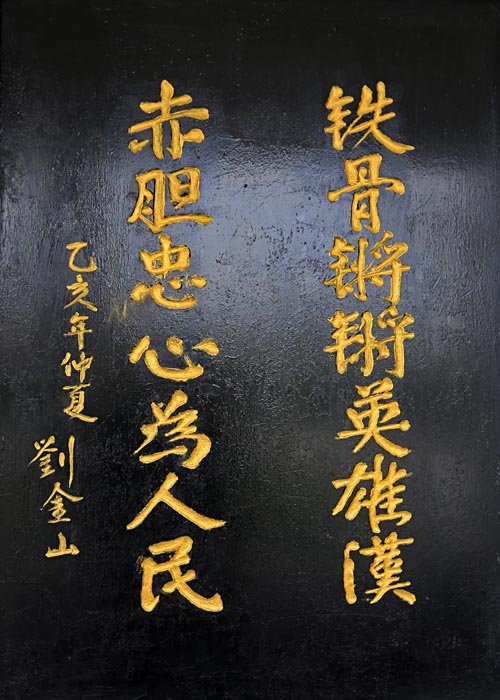 铁骨锵锵英雄漢
赤胆忠心為人民
乙亥年仲夏
劉金山